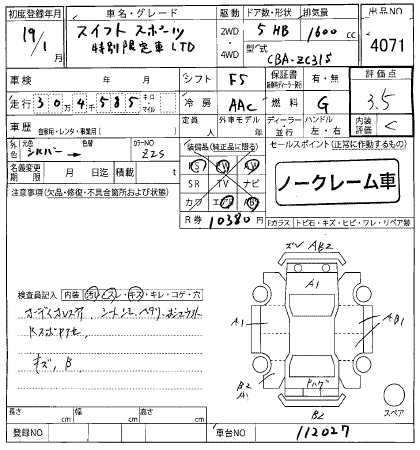 初度登録年月
19年
1月
車名・グレード
スイフト スポーツ
特別限定車 LTD
駆動
2WD
4WD
ドア数・形状
5 HB
排気量
1600 cc
型式
CBA-ZC31S
出品NO
4071
車検 年 月
シフト F5
保証書 有・無
評価点
3.5
走行 30万4千585 キロ マイル
冷房 AAC
燃料 G
内装評価 C
車歴 自家用・レンタ・事業用( )
定員 人
外車モデル年 年
ディーラー・並行
ハンドル 左・右
外色 元色 シルバー → 色替
カラーNO Z2S
名義変更期限 月 日迄
積載 t
装備品(純正品に限る)
SR TV ナビ
カワ エアB
R券 10380円
セールスポイント(正常に作動するもの)
ノークレーム車
注意事項(欠品・修復・不具合箇所および状態)
Fガラス トビ石・キズ・ヒビ・ワレ・リペア跡
検査員記入 内装 汚れ・スレ・キズ・キレ・コゲ・穴
キズ、B
ズレ AB2
A1
A1
AB1
B2
A1
B2
スペア
長さ cm
幅 cm
高さ cm
登録NO
車台NO 112027